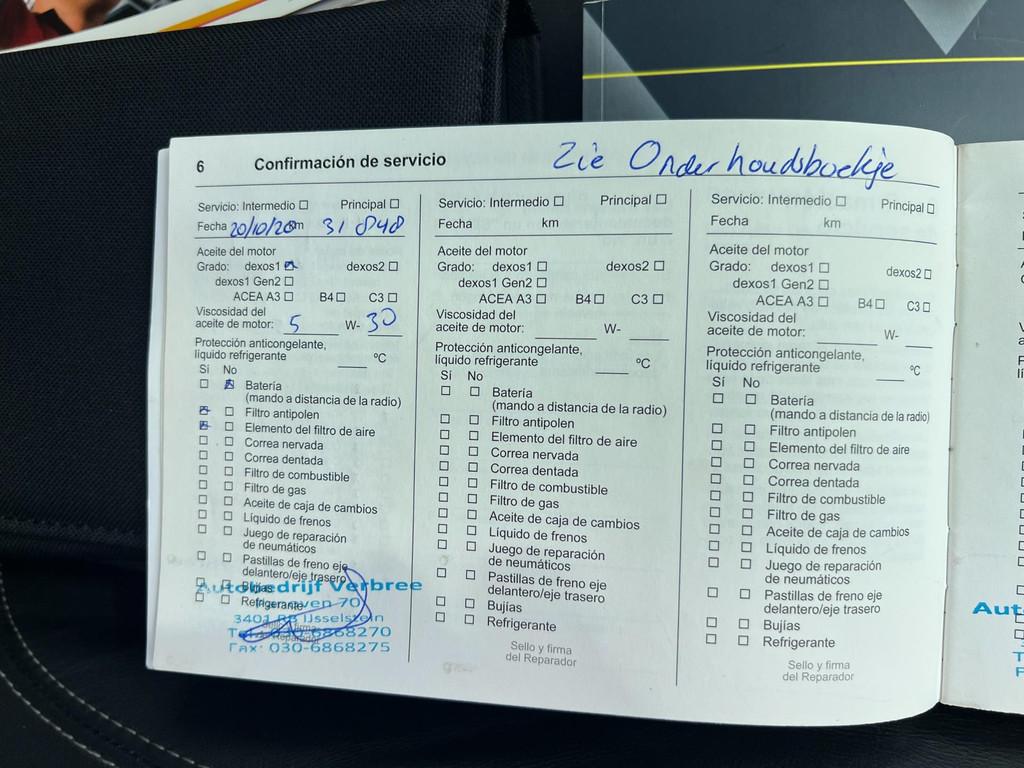 6 Confirmación de servicio
Zie Onderhoudsboekje
Servicio: Intermedio ☐ Principal ☐
Fecha 20/10/20 km 31 848
Aceite del motor
Grado: dexos1 ☒ dexos2 ☐
dexos1 Gen2 ☐
ACEA A3 ☐ B4 ☐ C3 ☐
Viscosidad del
aceite de motor: 5 W- 30
Protección anticongelante,
líquido refrigerante ___ ºC
Sí No
☐ ☒ Batería
(mando a distancia de la radio)
☒ ☐ Filtro antipolen
☒ ☐ Elemento del filtro de aire
☐ ☐ Correa nervada
☐ ☐ Correa dentada
☐ ☐ Filtro de combustible
☐ ☐ Filtro de gas
☐ ☐ Aceite de caja de cambios
☐ ☐ Líquido de frenos
☐ ☐ Juego de reparación
de neumáticos
☐ ☐ Pastillas de freno eje
delantero/eje trasero
☐ ☐ Bujías
☐ ☐ Refrigerante
Sello y firma
del Reparador
Autobedrijf Verbree
70
3401 RB IJsselstein
Tel: 030-6868270
Fax: 030-6868275
Servicio: Intermedio ☐ Principal ☐
Fecha km
Aceite del motor
Grado: dexos1 ☐ dexos2 ☐
dexos1 Gen2 ☐
ACEA A3 ☐ B4 ☐ C3 ☐
Viscosidad del
aceite de motor: ___ W- ___
Protección anticongelante,
líquido refrigerante ___ ºC
Sí No
☐ ☐ Batería
(mando a distancia de la radio)
☐ ☐ Filtro antipolen
☐ ☐ Elemento del filtro de aire
☐ ☐ Correa nervada
☐ ☐ Correa dentada
☐ ☐ Filtro de combustible
☐ ☐ Filtro de gas
☐ ☐ Aceite de caja de cambios
☐ ☐ Líquido de frenos
☐ ☐ Juego de reparación
de neumáticos
☐ ☐ Pastillas de freno eje
delantero/eje trasero
☐ ☐ Bujías
☐ ☐ Refrigerante
Sello y firma
del Reparador
Servicio: Intermedio ☐ Principal ☐
Fecha km
Aceite del motor
Grado: dexos1 ☐ dexos2 ☐
dexos1 Gen2 ☐
ACEA A3 ☐ B4 ☐ C3 ☐
Viscosidad del
aceite de motor: ___ W- ___
Protección anticongelante,
líquido refrigerante ___ ºC
Sí No
☐ ☐ Batería
(mando a distancia de la radio)
☐ ☐ Filtro antipolen
☐ ☐ Elemento del filtro de aire
☐ ☐ Correa nervada
☐ ☐ Correa dentada
☐ ☐ Filtro de combustible
☐ ☐ Filtro de gas
☐ ☐ Aceite de caja de cambios
☐ ☐ Líquido de frenos
☐ ☐ Juego de reparación
de neumáticos
☐ ☐ Pastillas de freno eje
delantero/eje trasero
☐ ☐ Bujías
☐ ☐ Refrigerante
Sello y firma
del Reparador
Aut